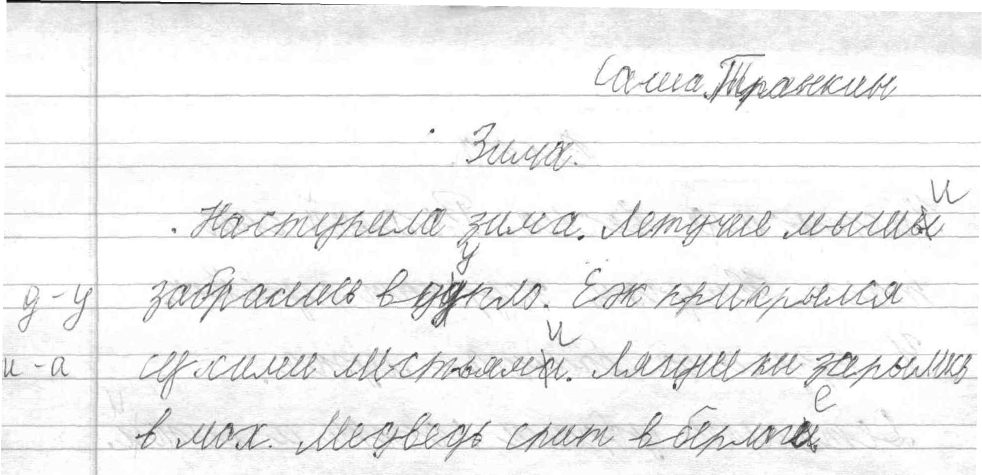 Саша Транкин
Зима.
и
Наступила зима. Летучие мышы
у
д-у забрались в ддпло. Еж прикрылся
и
и-а сухими листьяма. Лягушки зарылись
е
в мох. Медведь спит в берлога.